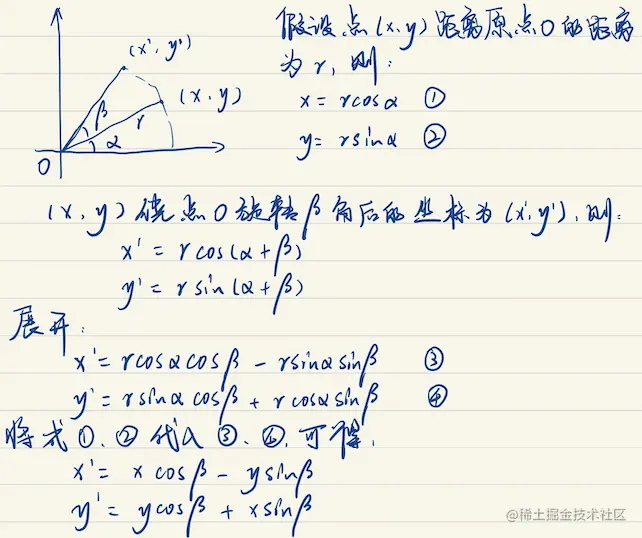 (x', y')
(x, y)
β
r
α
O
假设点(x,y)距离原点O的距离
为r,则:
x = rcosα ①
y = rsinα ②
(x,y)绕点O旋转β角后的坐标为(x',y'),则:
x' = rcos(α+β)
y' = rsin(α+β)
展开:
x' = rcosαcosβ - rsinαsinβ ③
y' = rsinαcosβ + rcosαsinβ ④
将式①、②代入③、④,可得,
x' = xcosβ - ysinβ
y' = ycosβ + xsinβ
@稀土掘金技术社区